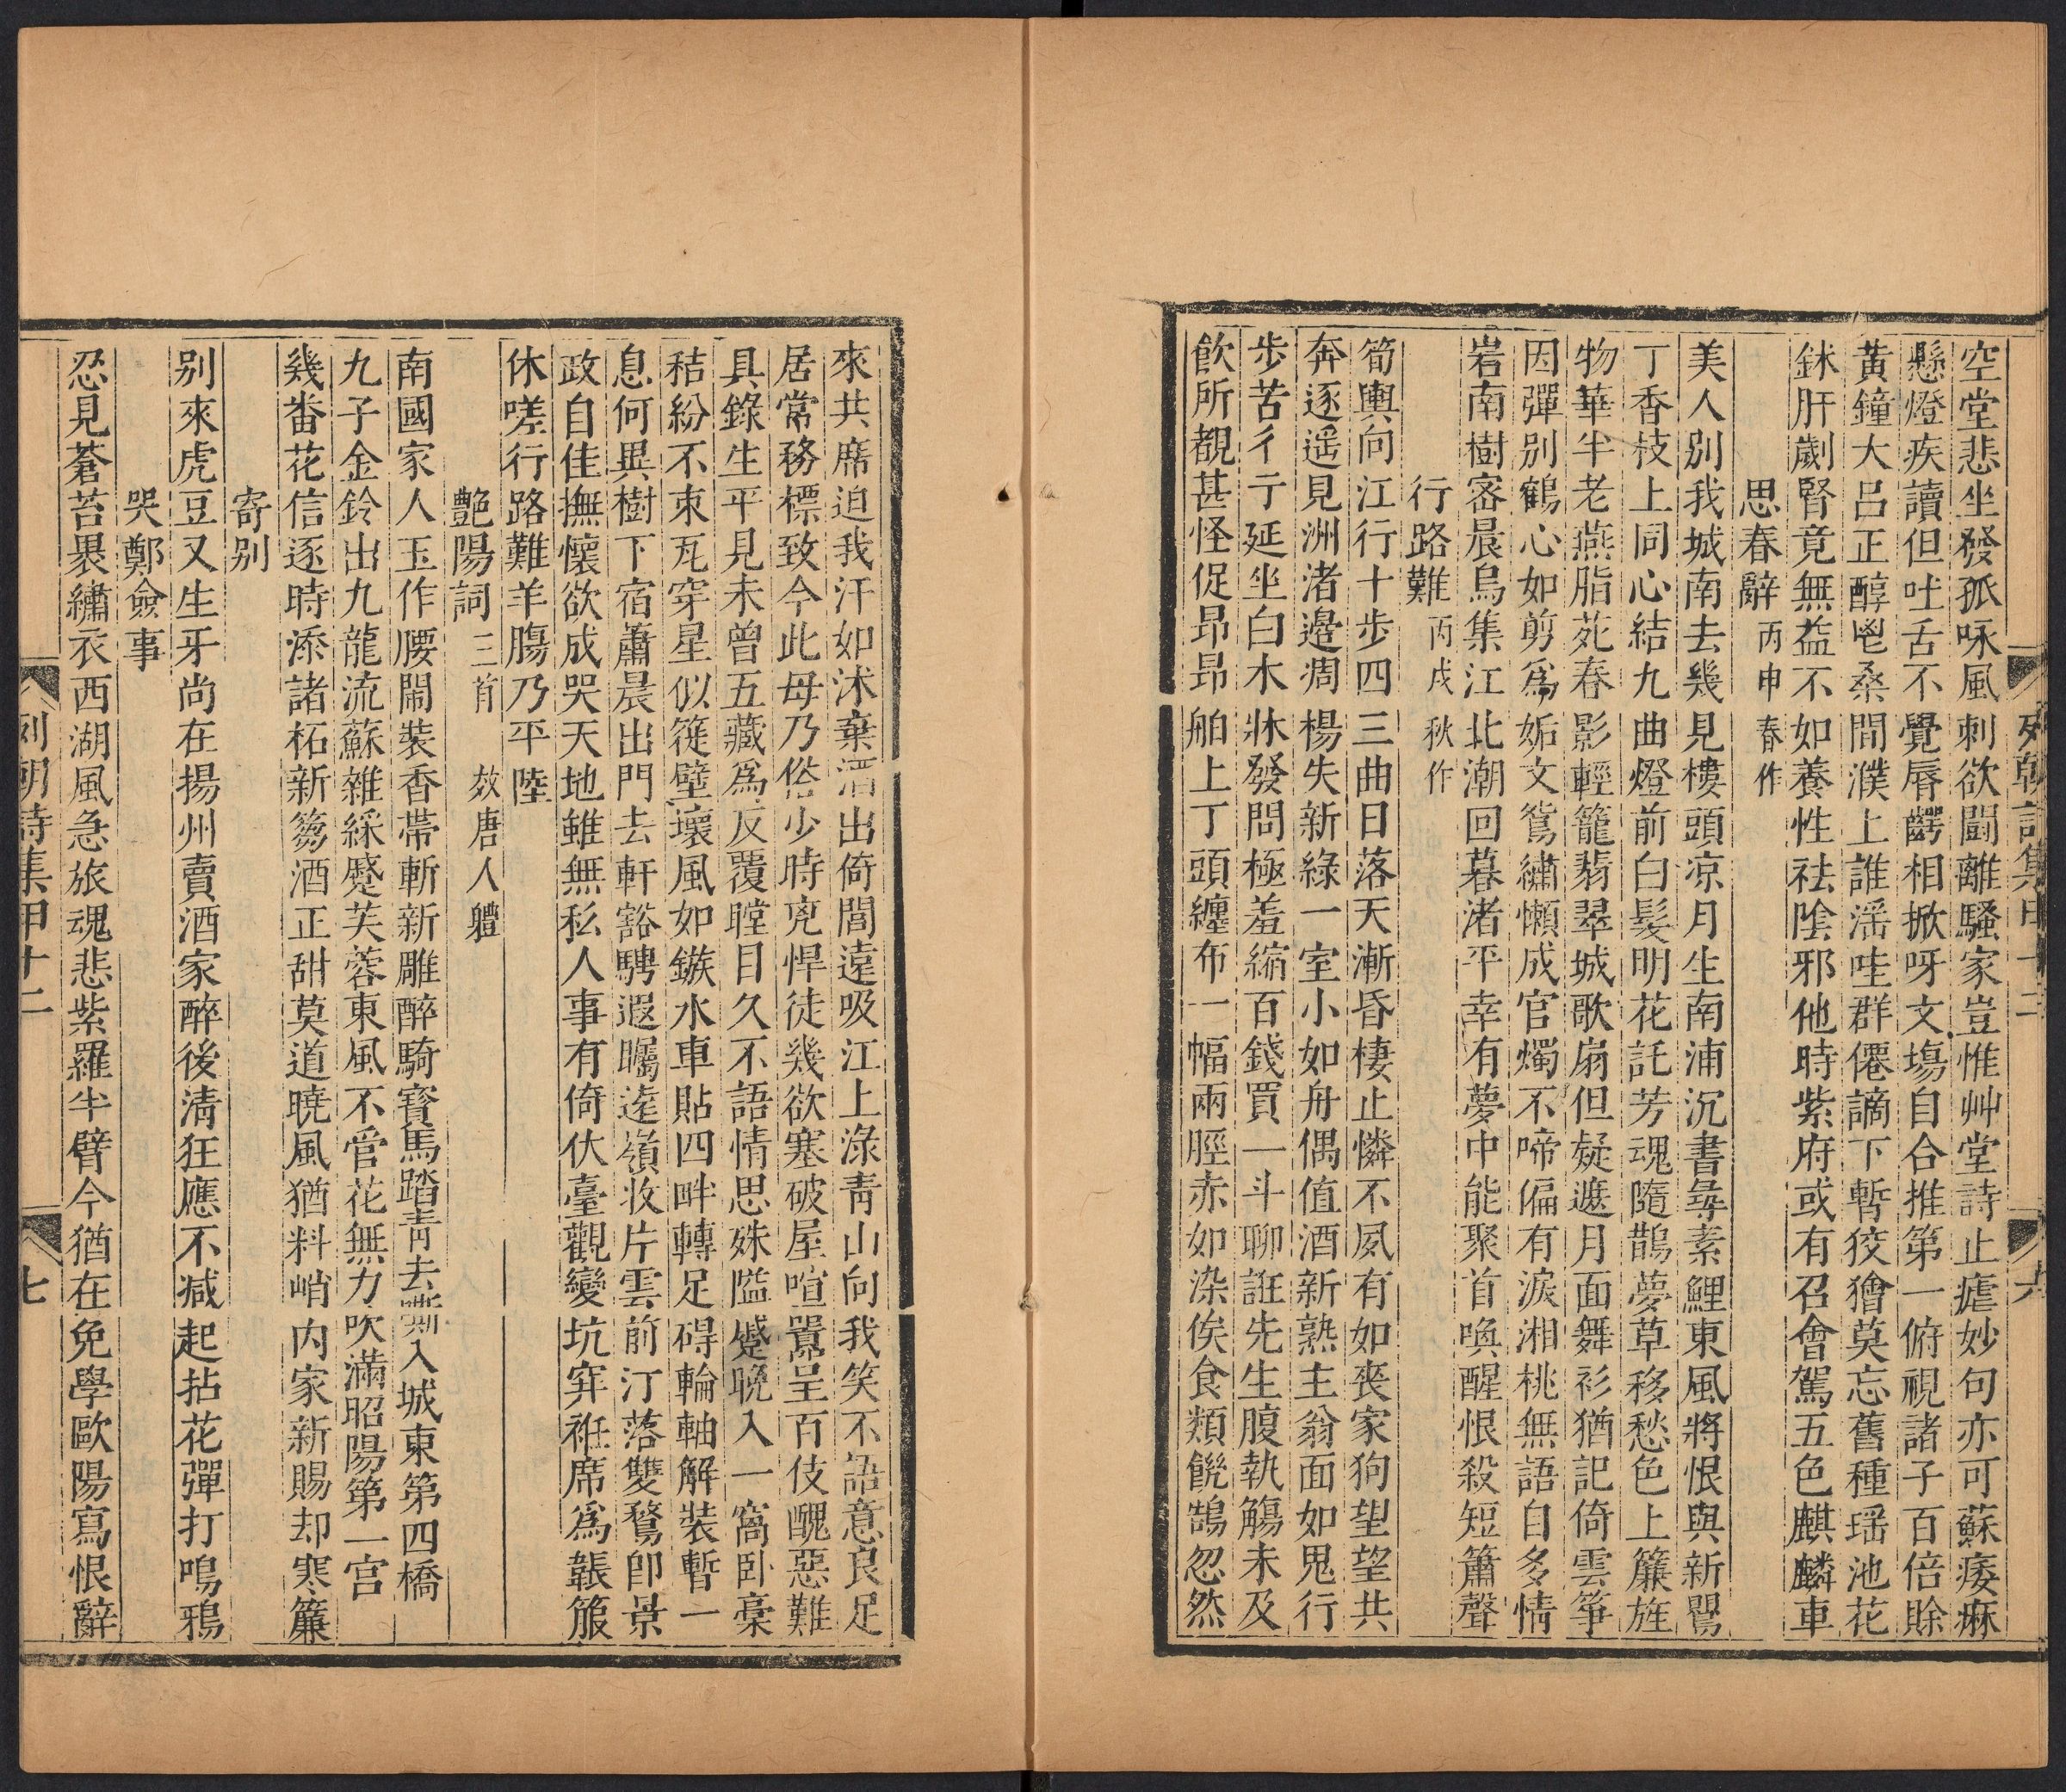 列朝詩集甲十二 六
空堂悲坐發孤咏風刺欲鬭離騷家豈惟艸堂詩止瘧妙句亦可蘇痿痳
懸燈疾讀但吐舌不覺脣齶相掀呀文塲自合推第一俯視諸子百倍賒
黃鐘大呂正醇鬯桑間濮上誰淫哇群僊謫下暫狡獪莫忘舊種瑤池花
鉥肝劌腎竟無益不如養性袪陰邪他時紫府或有召會駕五色麒麟車
思春辭 丙申春作
美人别我城南去幾見樓頭凉月生南浦沉書尋素鯉東風將恨與新鸎
丁香枝上同心結九曲燈前白髮明花託芳魂隨鵲夢草移愁色上簾旌
物華半老燕脂苑春影輕籠翡翠城歌扇但疑遮月面舞衫猶記倚雲箏
因彈别鶴心如剪爲妬文鴛繡懶成官燭不啼偏有淚湘桃無語自多情
岩南樹密晨烏集江北潮回暮渚平幸有夢中能聚首喚醒恨殺短簫聲
行路難 丙戌秋作
筍輿向江行十步四三曲日落天漸昏棲止憐不夙有如喪家狗望望共
奔逐遥見洲渚邊凋楊失新綠一室小如舟偶值酒新熟主翁面如鬼行
步苦彳亍延坐白木牀發問極羞縮百錢買一斗聊誑先生腹執觴未及
飲所覩甚怪促昂昂舶上丁頭纏布一幅兩脛赤如染俟食類餽鵠忽然
來共席迫我汗如沐棄酒出倚閭遠吸江上淥靑山向我笑不語意良足
居常務標致今此毋乃俗少時兇悍徒幾欲塞破屋喧囂呈百伎醜惡難
具錄生平見未曾五藏爲反覆瞠目久不語情思姝隘蹙晚入一窩卧稾
秸紛不束瓦穿星似簁壁壞風如鏃水車貼四畔轉足碍輪軸解裝暫一
息何異樹下宿蕭晨出門去軒豁騁遐矚遠嶺收片雲前汀落雙鶩卽景
政自佳撫懷欲成哭天地雖無私人事有倚伏臺觀變坑穽袵席爲韔箙
休嗟行路難羊膓乃平陸
艷陽詞 三首 效唐人軆
南國家人玉作腰鬧裝香帶斬新雕醉騎寳馬踏靑去嘶入城東第四橋
九子金鈴出九龍流蘇雜綵蹙芙蓉東風不管花無力吹滿昭陽第一宫
幾畨花信逐時添諸柘新篘酒正甜莫道曉風猶料峭内家新賜却寒簾
寄别
别來虎豆又生牙尚在揚州賣酒家醉後清狂應不减起拈花彈打鳴鴉
哭鄭僉事
忍見蒼苔褁繡衣西湖風急旅魂悲紫羅半臂今猶在免學歐陽寫恨辭
列朝詩集甲十二 七